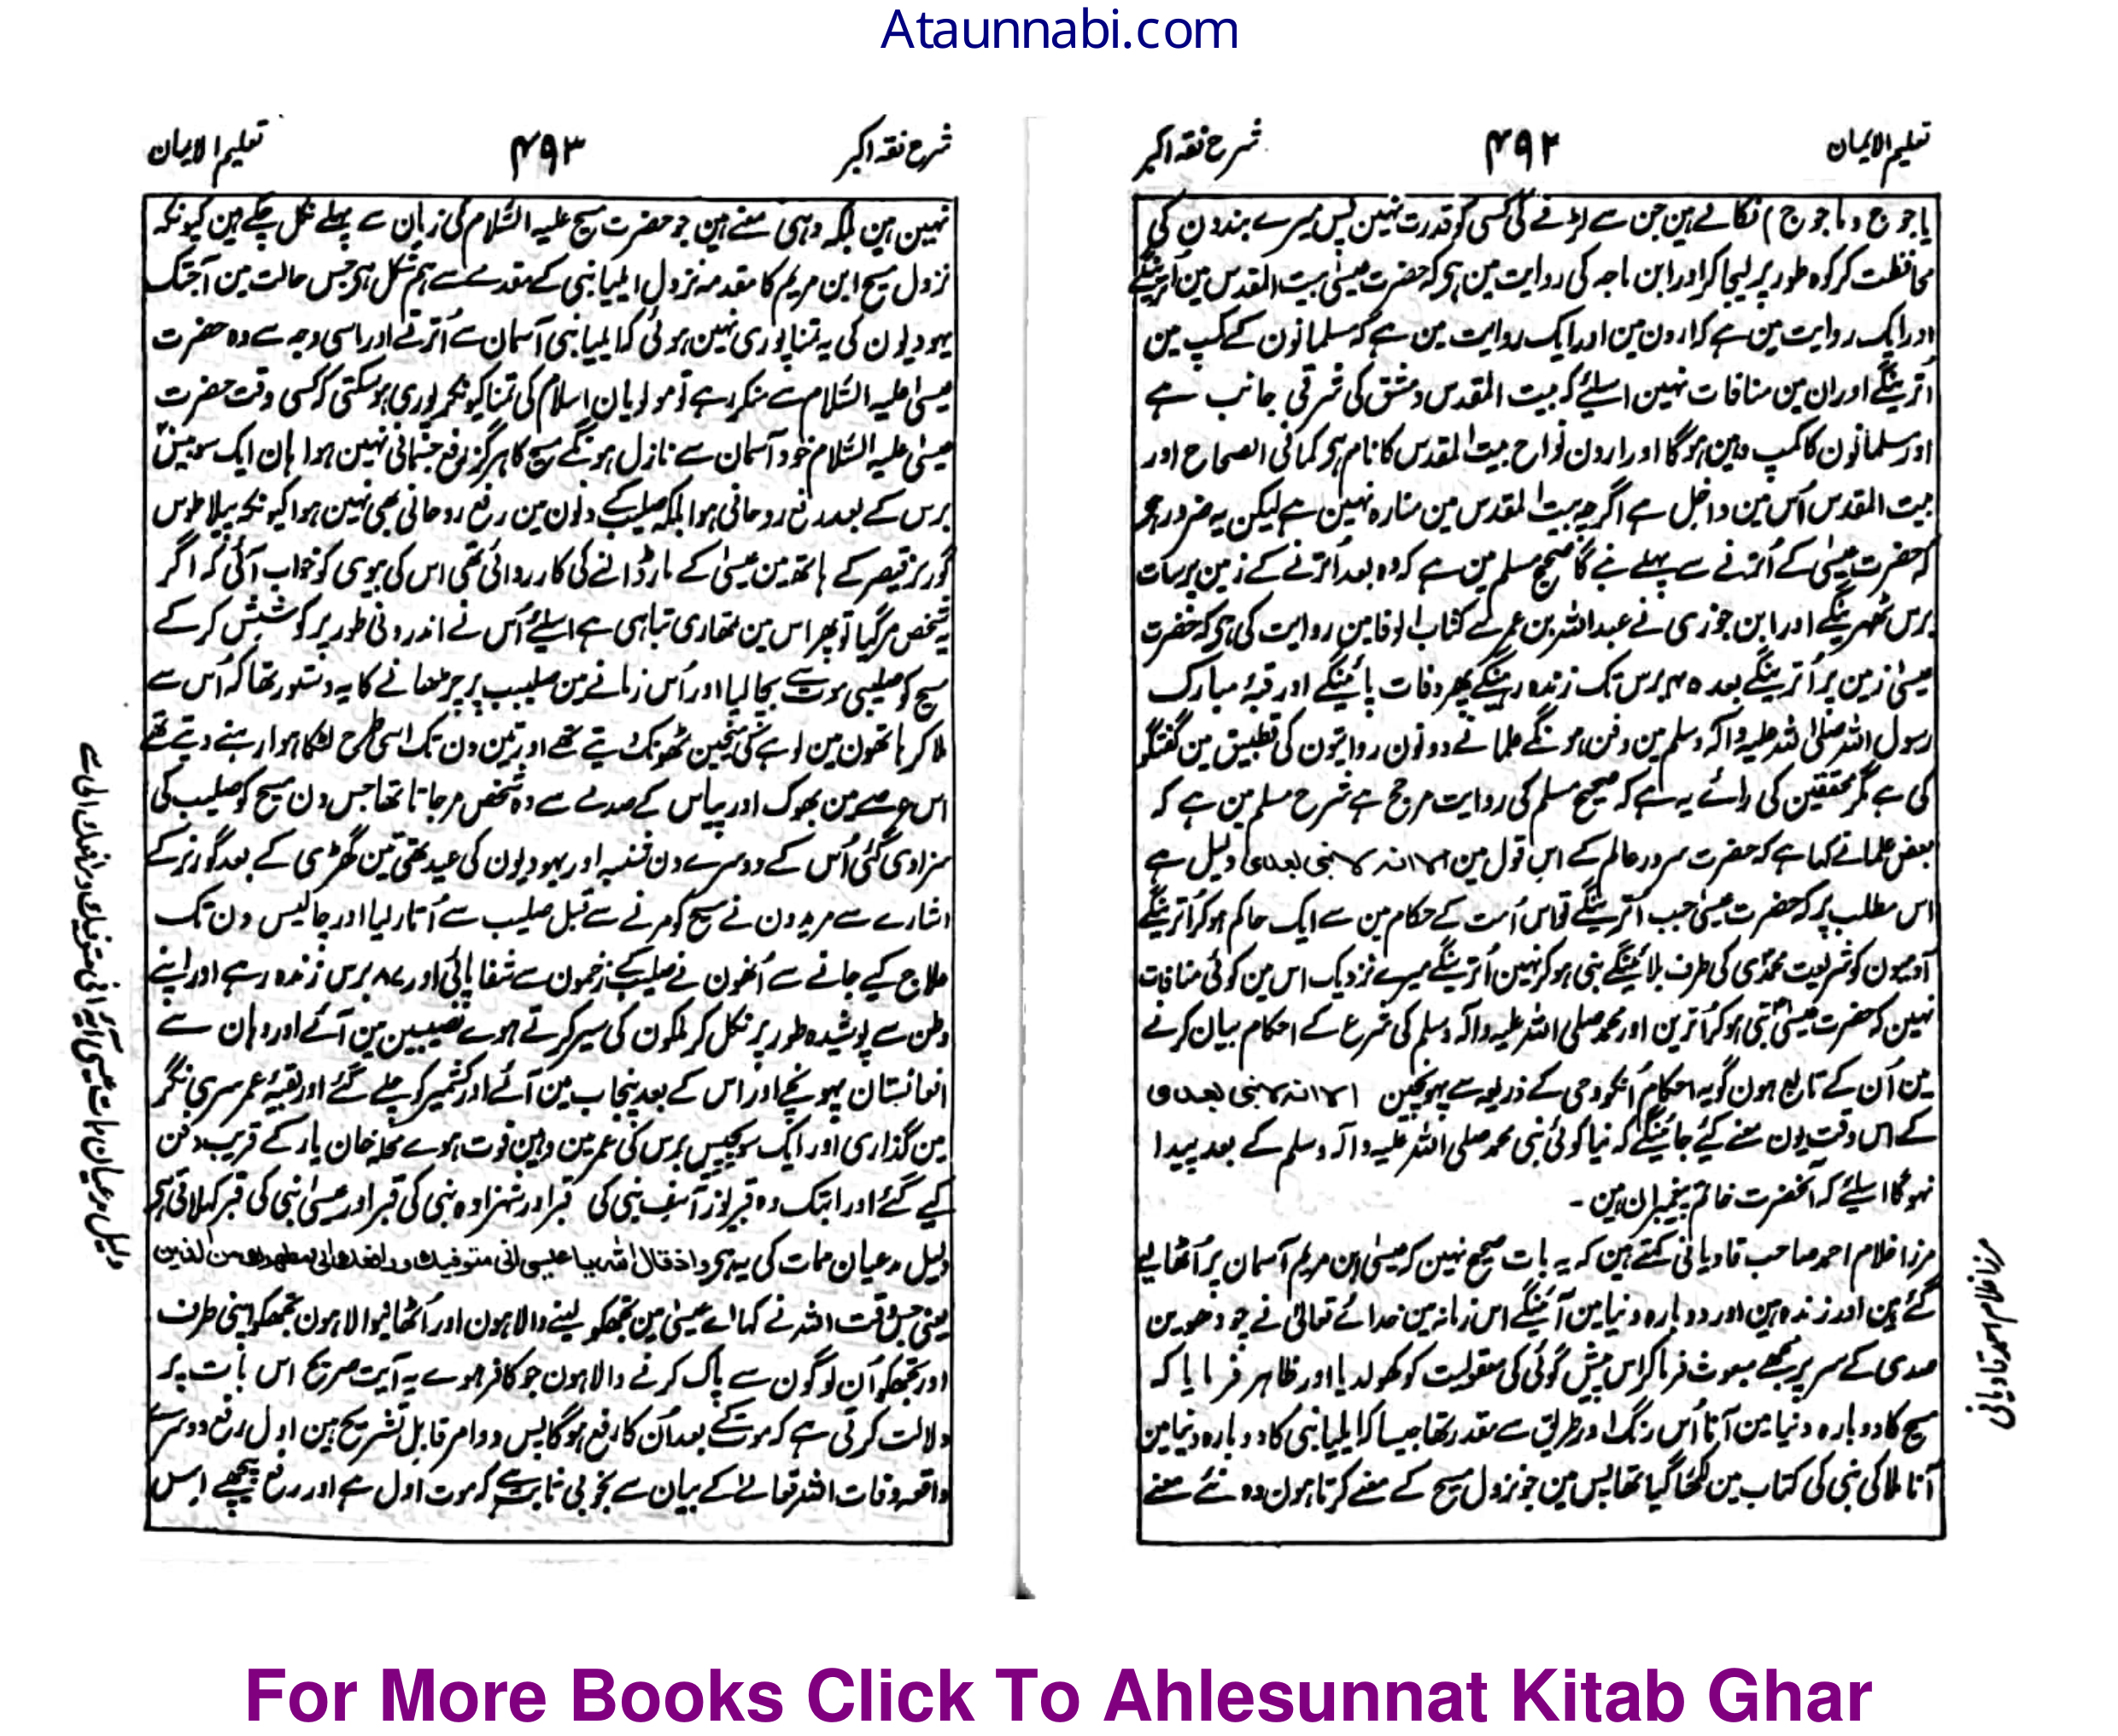 Ataunnabi.com
تعلیم الایمان
۴۹۲
شرح فقہ اکبر
یاجوج و ماجوج) نکالے ہین جن سے لڑنے کی کسی کو قدرت نہین پس میرے بندون کی
محافظت کر کوہ طور پر لیجا کر اور ابن ماجہ کی روایت مین ہی کہ حضرت عیسیٰ بیت المقدس مین اُترینگے
اور ایک روایت مین ہے کہ اردن مین اور ایک روایت مین ہے کہ مسلمانون کے کمپ مین
اُترینگے اور ان مین منافات نہین اسلیے کہ بیت المقدس دمشق کی شرقی جانب ہے
اور مسلمانون کا کمپ وہین ہوگا اور اردن نواح بیت المقدس کا نام ہی کمافی الصحاح اور
بیت المقدس اُس مین داخل ہے اگرچہ بیت المقدس مین منارہ نہین ہے لیکن یہ ضرور ہی
کہ حضرت عیسیٰ کے اُترنے سے پہلے بنے گا صحیح مسلم مین ہے کہ وہ بعد اُترنے کے زمین پر سات
برس ٹھہرینگے اور ابن جوزی نے عبداللہ بن عمر کے کتاب الوفا مین روایت کی ہی کہ حضرت
عیسیٰ زمین پر اُترینگے بعدہ ۴۵ برس تک زندہ رہینگے پھر وفات پائینگے اور قبۂ مبارک
رسول اللہ صلی اللہ علیہ وآلہ وسلم مین دفن ہونگے علما نے دونون روایتون کی تطبیق مین گفتگو
کی ہے مگر محققین کی رائے یہ ہے کہ صحیح مسلم کی روایت مرجح ہے شرح مسلم مین ہے کہ
بعض علما نے کہا ہے کہ حضرت سرور عالم کے اس قول مین الا انہ لا نبی بعدی دلیل ہے
اس مطلب پر کہ حضرت عیسیٰ جب اُترینگے تو اس اُمت کے حکام مین سے ایک حاکم ہو کر اُترینگے
آدمیون کو شریعت محمدی کی طرف بلائینگے نبی ہو کر نہین اُترینگے میرے نزدیک اس مین کوئی منافات
نہین کہ حضرت عیسیٰ نبی ہو کر اُترین اور محمد صلی اللہ علیہ وآلہ وسلم کی شرع کے احکام بیان کرنے
مین اُن کے تابع ہون گو یہ احکام اُنکو وحی کے ذریعہ سے پہونچین الا انہ لا نبی بعدی
کے اس وقت یون معنے کیے جائینگے کہ نیا کوئی نبی محمد صلی اللہ علیہ وآلہ وسلم کے بعد پیدا
نہوگا اسلیے کہ آنحضرت خاتم پیغمبران ہین ۔
مرزا غلام احمد صاحب قادیانی کہتے ہین کہ یہ بات صحیح نہین کہ عیسیٰ ابن مریم آسمان پر اُٹھا لیے
گئے ہین اور زندہ ہین اور دوبارہ دنیا مین آئینگے اس زمانہ مین خدائے تعالیٰ نے چودھوین
صدی کے سر پر مجھے مبعوث فرما کر اس پیش گوئی کی معقولیت کو کھول دیا اور ظاہر فرمایا کہ
مسیح کا دوبارہ دنیا مین آنا اُس رنگ اور طریق سے مقدر تھا جیسا کہ ایلیا نبی کا دوبارہ دنیا مین
آنا ملاکی نبی کی کتاب مین لکھا گیا تھا پس مین جو نزول مسیح کے معنے کرتا ہون وہ نئے معنے
مرزا غلام احمد قادیانی
شرح فقہ اکبر
۴۹۳
تعلیم الایمان
نہین ہین بلکہ وہی معنے ہین جو حضرت مسیح علیہ السّلام کی زبان سے پہلے نکل چکے ہین کیونکہ
نزول مسیح ابن مریم کا مقدمہ نزول ایلیا نبی کے مقدمے سے ہم شکل ہی جس حالت مین آجتک
یہودیون کی یہ تمنا پوری نہین ہوئی کہ ایلیا نبی آسمان سے اُترتے اور اسی وجہ سے وہ حضرت
عیسیٰ علیہ السّلام سے منکر رہے تو مولویان اسلام کی تمنا کیونکر پوری ہوسکتی کہ کسی وقت حضرت
عیسیٰ علیہ السّلام خود آسمان سے نازل ہونگے مسیح کا ہرگز رفع جسمانی نہین ہوا ہان ایک سو بیس
برس کے بعد رفع روحانی ہوا بلکہ صلیب کے دنون مین رفع روحانی بھی نہین ہوا کیونکہ پیلاطوس
گورنر قیصر کے ہاتھ مین عیسیٰ کے مار ڈالنے کی کارروائی تھی اس کی بیوی کو خواب آئی کہ اگر
یہ شخص مر گیا تو پھر اس مین تمھاری تباہی ہے اسلیے اُس نے اندرونی طور پر کوشش کر کے
مسیح کو صلیبی موت سے بچا لیا اور اُس زمانے مین صلیب پر چڑھانے کا یہ دستور تھا کہ اُس سے
ملا کر ہاتھون مین لوہے کی میخین ٹھونک دیتے تھے اور تین دن تک اسی طرح لٹکا ہوا رہنے دیتے تھے
اس عرصے مین بھوک اور پیاس کے صدمے سے وہ شخص مر جاتا تھا جس دن مسیح کو صلیب کی
سزا دی گئی اُس کے دوسرے دن شنبہ اور یہودیون کی عید تھی تین گھڑی کے بعد گورنر کے
اشارے سے مریدون نے مسیح کو مرنے سے قبل صلیب سے اُتار لیا اور چالیس دن تک
علاج کیے جانے سے اُنھون نے صلیب کے زخمون سے شفا پائی اور ۸۷ برس زندہ رہے اور اپنے
وطن سے پوشیدہ طور پر نکل کر ملکون کی سیر کرتے ہوے نصیبین مین آئے اور وہان سے
افغانستان پہونچے اور اس کے بعد پنجاب مین آئے اور کشمیر کو چلے گئے اور بقیۂ عمر سری نگر
مین گذاری اور ایک سو پچیس برس کی عمر مین وہین فوت ہوے محلہ خان یار کے قریب دفن
کیے گئے اور ابتک وہ قبر یوز آسف نبی کی قبر اور شہزادہ نبی کی قبر اور عیسیٰ نبی کی قبر کہلاتی ہی
دلیل مدعیان ممات کی یہ ہی واذ قال اللہ یا عیسی انی متوفیک ورافعک الی ومطهرک من الذین
یعنی جس وقت اللہ نے کہا اے عیسیٰ مین تجھکو لینے والا ہون اور اُٹھانیوالا ہون تجھکو اپنی طرف
اور تجھکو اُن لوگون سے پاک کرنے والا ہون جو کافر ہوے یہ آیت صریح اس بات پر
دلالت کرتی ہے کہ موت کے بعد اُن کا رفع ہوگا پس دو امر قابل تشریح ہین اول رفع دوسرے
واقعہ وفات اللہ تعالیٰ کے بیان سے بخوبی ثابت ہے کہ موت اول ہے اور رفع پیچھے اس
دلیل مدعیان ممات عیسیٰ آیۂ انی متوفیک ورافعک الی سے
For More Books Click To Ahlesunnat Kitab Ghar